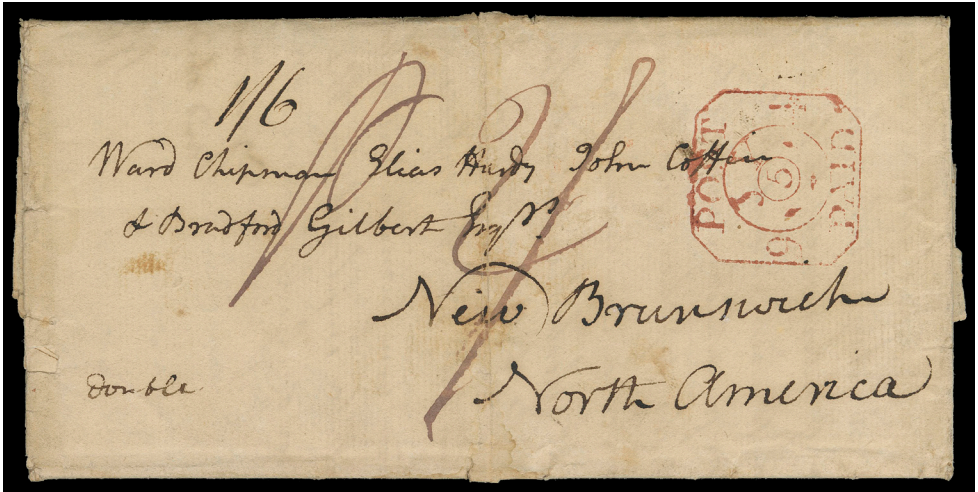 1/6
Ward Chipman Elias Hardy John Coffin
& Bradford Gilbert Esqrs
New Brunswick
North America
double
POST
PAID